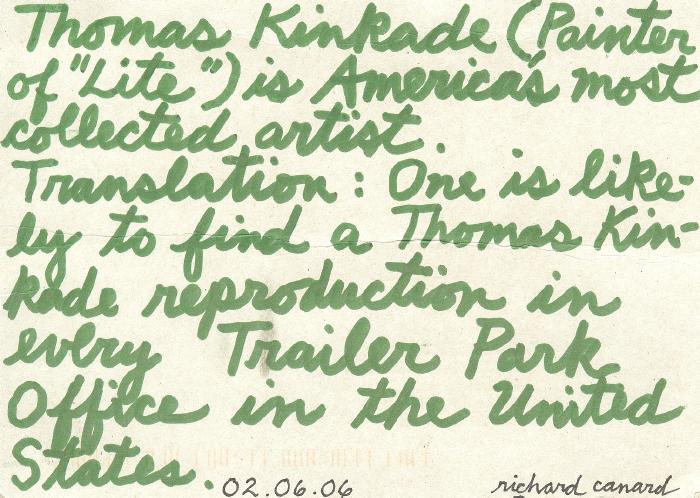 Thomas Kinkade (Painter
of "Lite") is America's most
collected artist.
Translation : One is like-
ly to find a Thomas Kin-
kade reproduction in
every Trailer Park
Office in the United
States. 02.06.06 richard canard